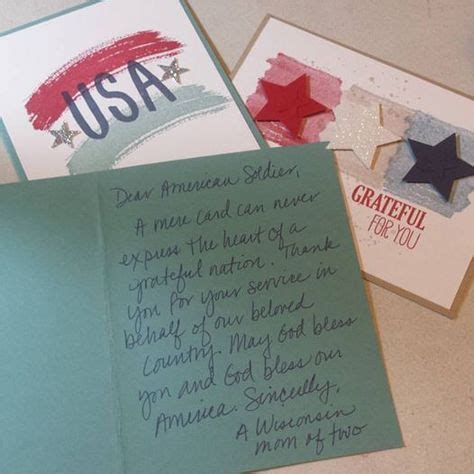 USA
GRATEFUL
FOR YOU
Dear American Soldier,
A mere card can never
express the heart of a
grateful nation. Thank
you for your service in
behalf of our beloved
Country. May God bless
you and God bless our
America. Sincerely,
A Wisconsin
mom of two